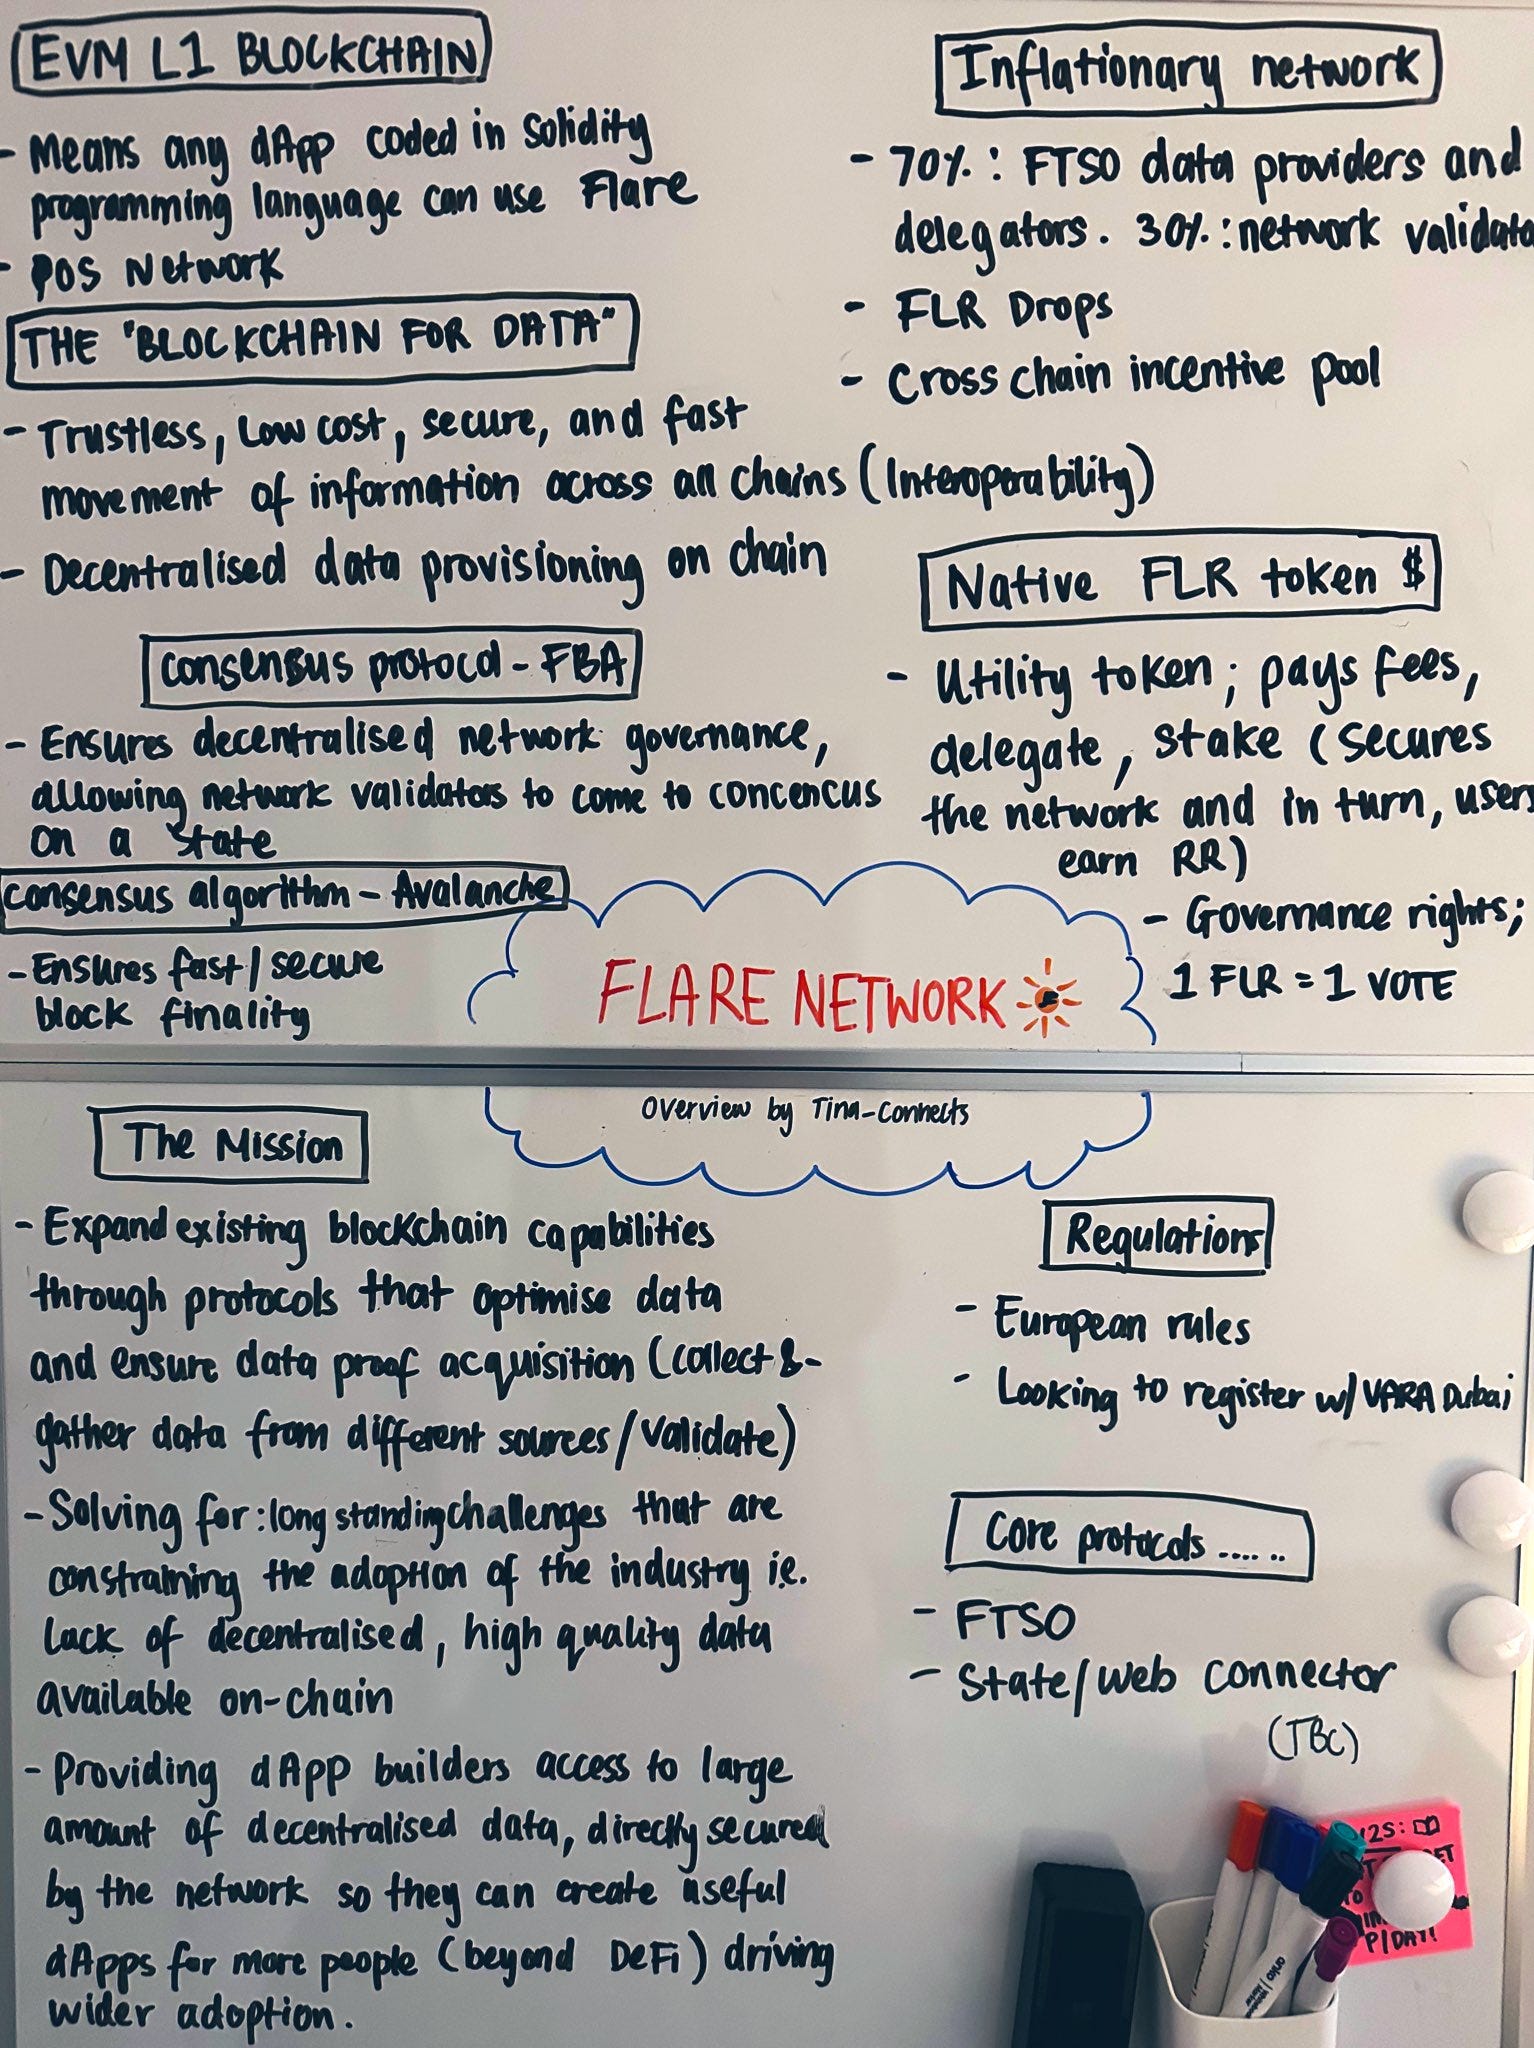 EVM L1 BLOCKCHAIN
- Means any dApp coded in Solidity
programming language can use Flare
- POS Network
THE "BLOCKCHAIN FOR DATA"
- Trustless, Low cost, secure, and fast
movement of information across all chains (Interoperability)
- Decentralised data provisioning on chain
consensus protocol - FBA
- Ensures decentralised network governance,
allowing network validators to come to concencus
on a state
consensus algorithm - Avalanche
- Ensures fast/secure
block finality
Inflationary network
- 70%: FTSO data providers and
delegators. 30%: network validato
- FLR Drops
- Cross chain incentive pool
Native FLR token $
- Utility token; pays fees,
delegate, stake (secures
the network and in turn, users
earn RR)
- Governance rights;
1 FLR = 1 VOTE
FLARE NETWORK
Overview by Tina-Connects
The Mission
- Expand existing blockchain capabilities
through protocols that optimise data
and ensure data proof acquisition (collect &-
gather data from different sources/validate)
- Solving for: long standing challenges that are
constraining the adoption of the industry i.e.
lack of decentralised, high quality data
available on-chain
- Providing dApp builders access to large
amount of decentralised data, directly secured
by the network so they can create useful
dApps for more people (beyond DeFi) driving
wider adoption.
Regulations
- European rules
- Looking to register w/ VARA Dubai
Core protocols ......
- FTSO
- State/Web Connector
(TBC)
P/DAY!